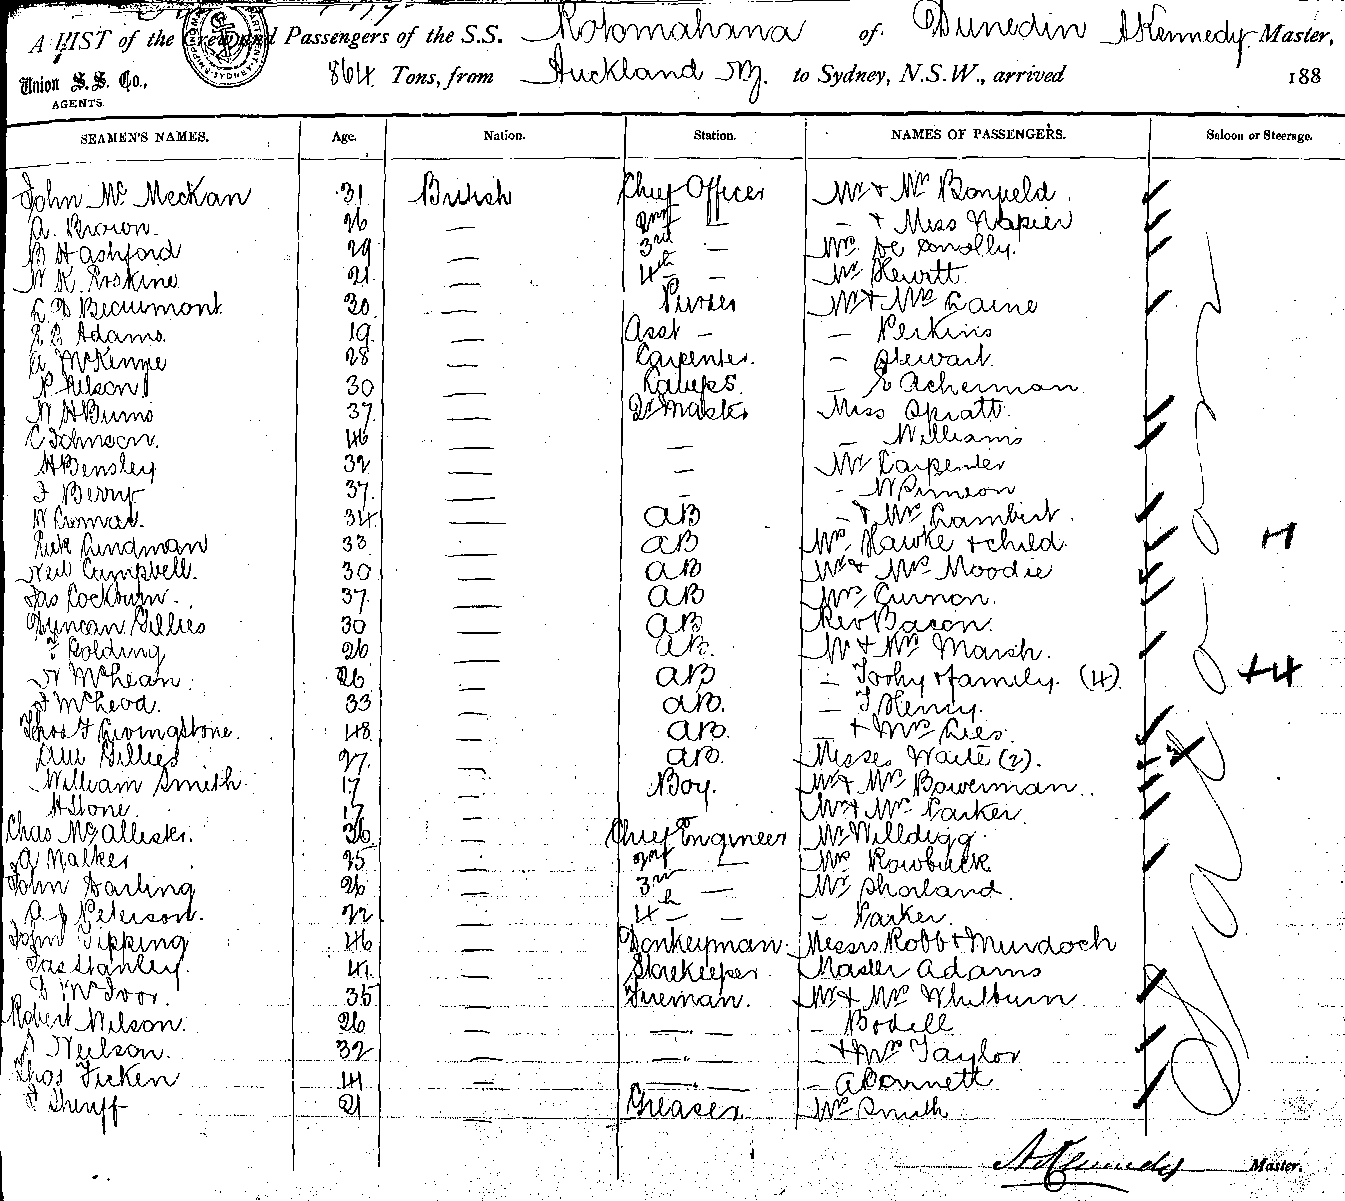 A LIST of the Crew and Passengers of the S.S. Rotomahana of Dunedin A Kennedy Master,
Union S. S. Co., AGENTS. 864 Tons, from Auckland NZ. to Sydney, N.S.W., arrived 188
SEAMEN'S NAMES. Age. Nation. Station. NAMES OF PASSENGERS. Saloon or Steerage.
John Mc Meckan 31 British Chief Officer Mr & Mrs Bonfield
A. Brown. 26 — 2nd — — & Miss Napier
B H Ashford 29 — 3rd — Mrs De Conolly.
W K Erskine 21 — 4th — Mr Hewitt
Beaumont 30 — Purser Mr & Mrs Caine
Adams. 19 — Asst — — Perkins
A McKinne 28 — Carpenter. — Stewart
P Nelson 30 — Lamps — E Acherman
W H Burns 37 — Qr Master Miss Spratt.
C Johnson. 46 — — — Williams
H Bensley 32 — — Mr Carpenter
F Berry 37. — — — W Simeon
W 34 — AB — & Mrs Lambert.
Lindman 33 — AB Mrs Hawke & child. 7
Neil Campbell. 30 — AB Mr & Mrs Moodie
Jas Cockburn. 37. — AB Mrs Curnon.
Duncan Gillies 30 — AB Rev Bacon.
Golding 26 — AB. Mr & Mrs Marsh.
McLean. 26 — AB — Toohy & family. (4) 4
McLeod. 33 — AB. — T Henry.
Thos F Livingstone. 48. — AB. — & Mrs Lees.
Gillies 27. — AB. Misses Waite (2).
William Smith. 17 — Boy. Mr & Mrs Bowerman
H Stone. 17 — Mr & Mrs Parker
Chas McAllister. 36 — Chief Engineer Mr Willdigg.
A Walker 25 — 2nd — Mrs Rowbuck
John Darling 26 — 3rd — Mr Shorland
A J Peterson. 22 — 4th — — Parker.
John Tipping 46 — Donkeyman. Messrs Robb & Murdoch
Jas Stanley. 41. — Storekeeper. Master Adams
D McIvor. 35 — Fireman. Mr & Mrs Whitburn
Robert Wilson. 26 — — — Bodell
Neilson. 32 — — — & Mrs Taylor
Thos Ficken 41 — — — A Barnett.
Shruff 21 Greaser Mrs Smith
Saloon
A Kennedy Master.